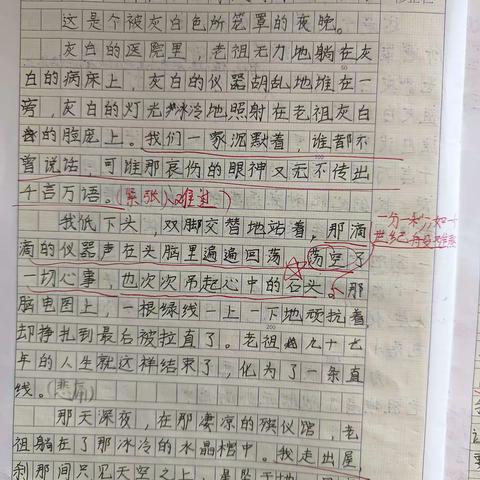 这是个被灰白色所笼罩的夜晚。
灰白的医院里，老祖无力地躺在灰
白的病床上，灰白的仪器胡乱地堆在一
旁，灰白的灯光冰冷地照射在老祖灰白
的脸庞上。我们一家沉默着，谁都不
曾说话，可谁那哀伤的眼神又无不传出
千言万语。(紧张)(难过)
我低下头，双脚交替地站着，那滴
滴的仪器声在头脑里遍遍回荡，荡空了
一切心事，也次次吊起心中的石头。那
脑电图上，一根绿线一上一下地顽抗着，
却挣扎到最后被拉直了。老祖九十七
年的人生就这样结束了，化为了一条直
线。(悲痛)
那天深夜，在那凄凉的殡仪馆，老
祖躺在了那冰冷的水晶棺中。我走出屋，
刹那间只见天空之上，
一分一秒
世纪
200